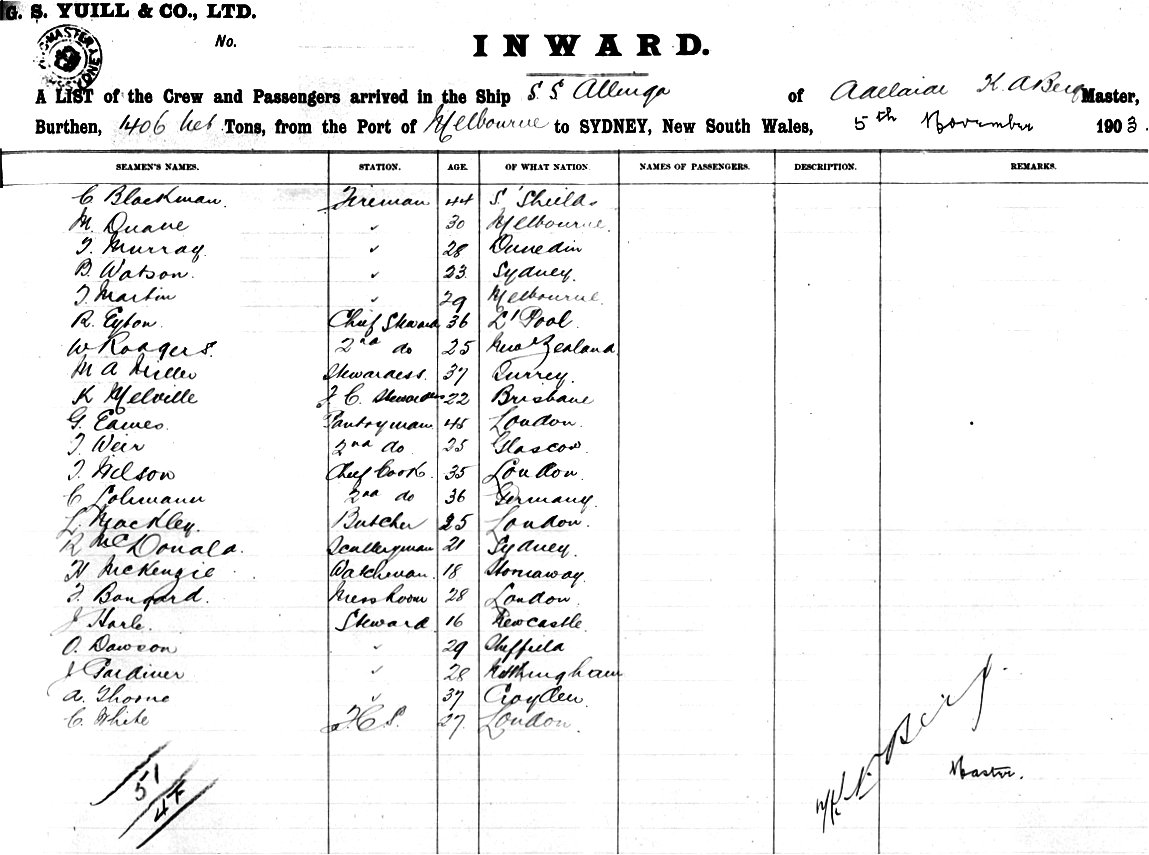 G. S. YUILL & CO., LTD.
No.
INWARD.
A LIST of the Crew and Passengers arrived in the Ship S.S. Allinga of Adelaide K. A Berg Master,
Burthen, 1406 Net Tons, from the Port of Melbourne to SYDNEY, New South Wales, 5th November 1903.
SEAMEN'S NAMES. STATION. AGE. OF WHAT NATION. NAMES OF PASSENGERS. DESCRIPTION. REMARKS.
C Blackman. Fireman 44 S' Shields
M. Duane " 30 Melbourne.
T. Murray. " 28 Dunedin
B. Watson. " 23 Sydney.
T. Martin " 29 Melbourne.
R. Eyton. Chief Steward 36 L'Pool.
W Rodgers. 2nd do 25 New Zealand.
M A Miller Stewardess. 37 Surrey.
K Melville F. C. Stewardess 22 Brisbane
G. Eames. Pantryman 45 London.
T. Weir 2nd do 25 Glascow
T. Wilson Chief Cook. 35 London.
C Lohmann 2nd do 36 Germany.
L. Mackley. Butcher 25 London.
R McDonald. Sculleryman 21 Sydney.
H McKenzie Watchman. 18 Stornaway.
F. Bongard. Messroom 28 London.
J Harle. Steward. 16 Newcastle.
O. Dawson " 29 Sheffield
J Gardiner " 28 Nottingham
A. Thorne " 37 Croyden.
C. White F. C. S. 27. London.
51
47
Master.